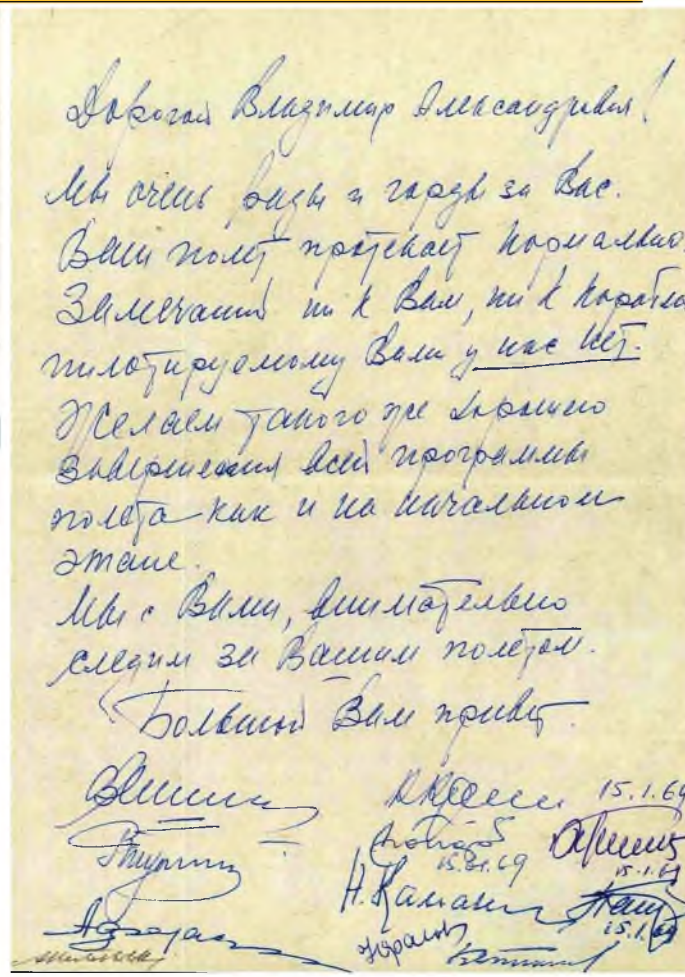 Дорогой Владимир Александрович!
Мы очень рады и горды за Вас.
Ваш полет протекает нормально.
Замечаний ни к Вам, ни к кораблю
пилотируемому Вами у нас нет.
Желаем такого же хорошего
завершения всей программы
полета как и на начальном
этапе.
Мы с Вами, внимательно
следим за Вашим полетом.
Большой Вам привет.
15.1.69
15.01.69
15.1.69
Н. Каманин
15.1.69